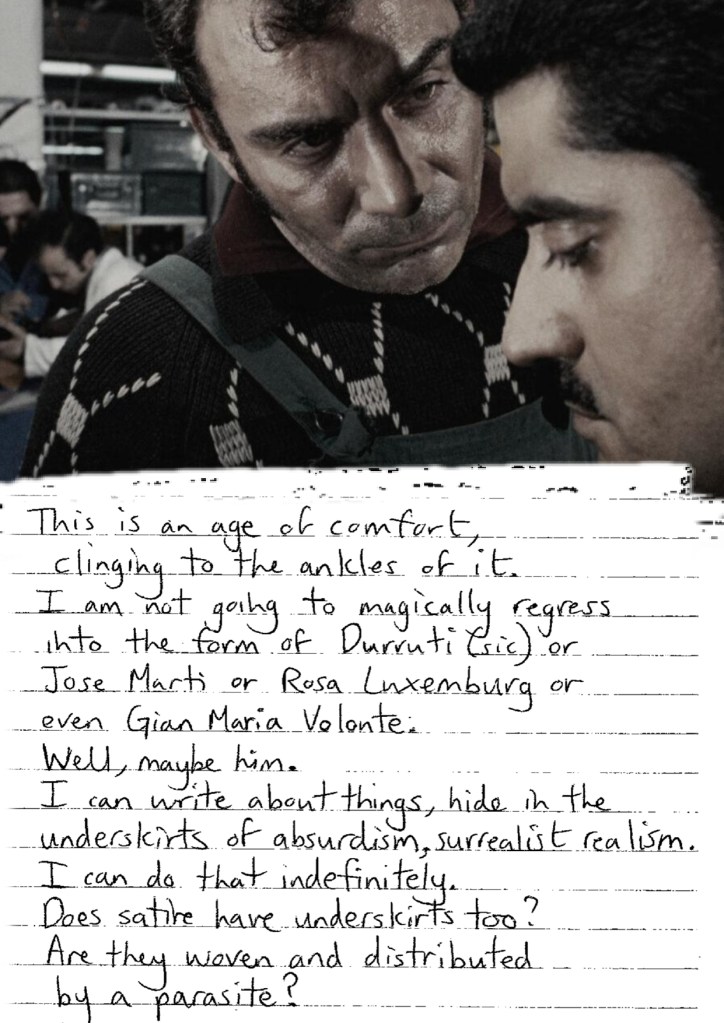 This is an age of comfort,
clinging to the ankles of it.
I am not going to magically regress
into the form of Durruti (sic) or
Jose Marti or Rosa Luxemburg or
even Gian Maria Volonte.
Well, maybe him.
I can write about things, hide in the
underskirts of absurdism, surrealist realism.
I can do that indefinitely.
Does satire have underskirts too?
Are they woven and distributed
by a parasite?